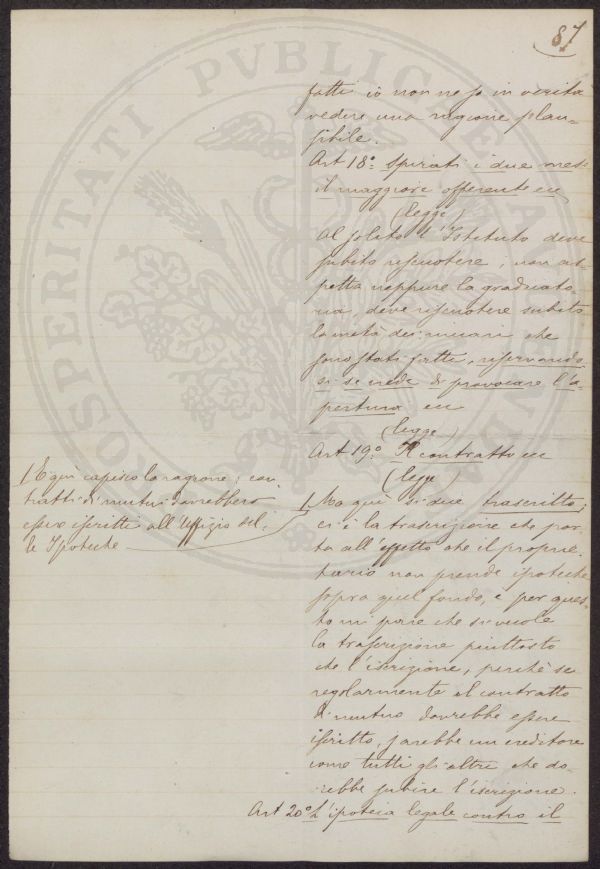 87
fatti io non ne so in verità
vedere una ragione plau=
sibile.
Art 18º Spirati i due mesi
il maggiore offerente ecc
(legge)
Al solito l'Istituto deve
subito riscuotere; non as-
petta neppure la graduato
ria, deve riscuotere subito
la metà dei mutui che
sono stati fatti, riservando
si se crede di provocare l'a-
pertura ecc
(legge)
Art 19º Il contratto ecc
(legge)
Ma qui si dice trascritto;
ci è la trascrizione che por-
ta all'effetto che il proprie-
tario non prende ipoteche
sopra quel fondo, e per ques-
to mi pare che si vuole
la trascrizione piuttosto
che l'iscrizione, perchè se
regolarmente il contratto
di mutuo dovrebbe essere
iscritto, sarebbe un creditore
come tutti gli altri che do-
rebbe subire l'iscrizione.
Art 20º L'ipoteca legale contro il
E qui capisco la ragione: con-
tratti di mutui dovrebbero
essere iscritti all'Uffizio del-
le Ipoteche
PROSPERITATI PVBLICAE